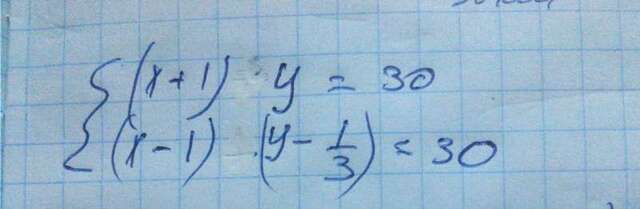 { (x+1) · y = 30
(x-1) · (y - 1/3) = 30